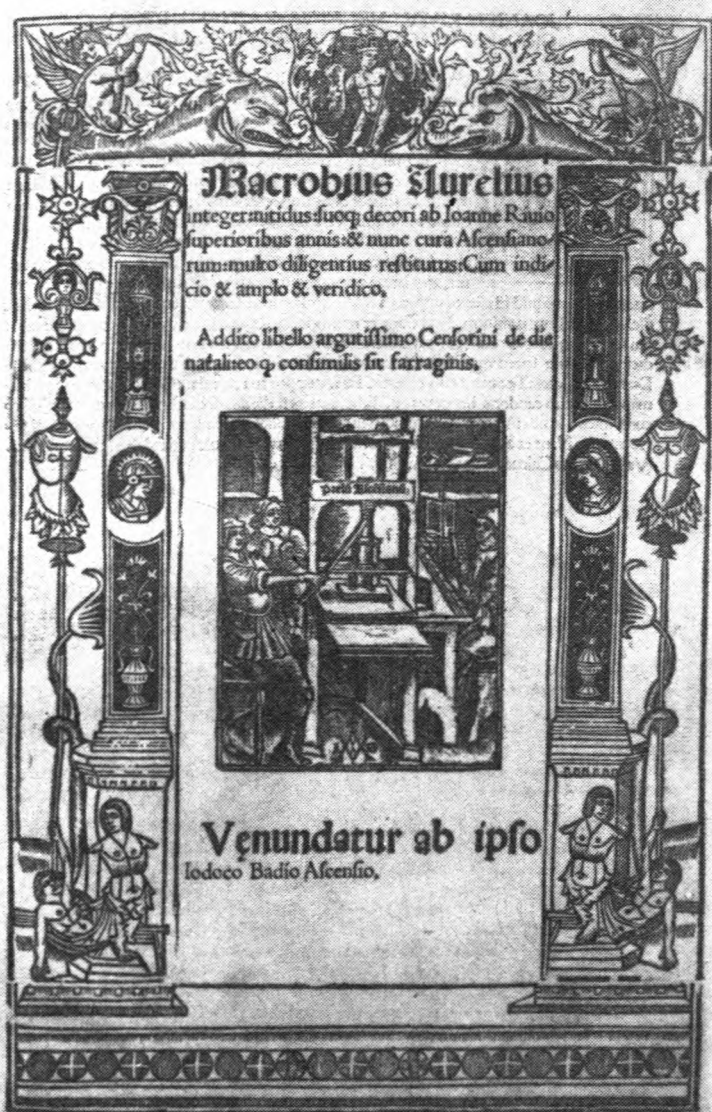 Macrobius Aurelius
integer:nitidus:suoq; decori ab Ioanne Riuio
superioribus annis:& nunc cura Ascensiano-
rum:multo diligentius restitutus:Cum indi-
cio & amplo & veridico.
Addito libello argutissimo Censorini de die
natali:eo q, consimilis sit farraginis.
Vęnundatur ab ipso
Iodoco Badio Ascensio.